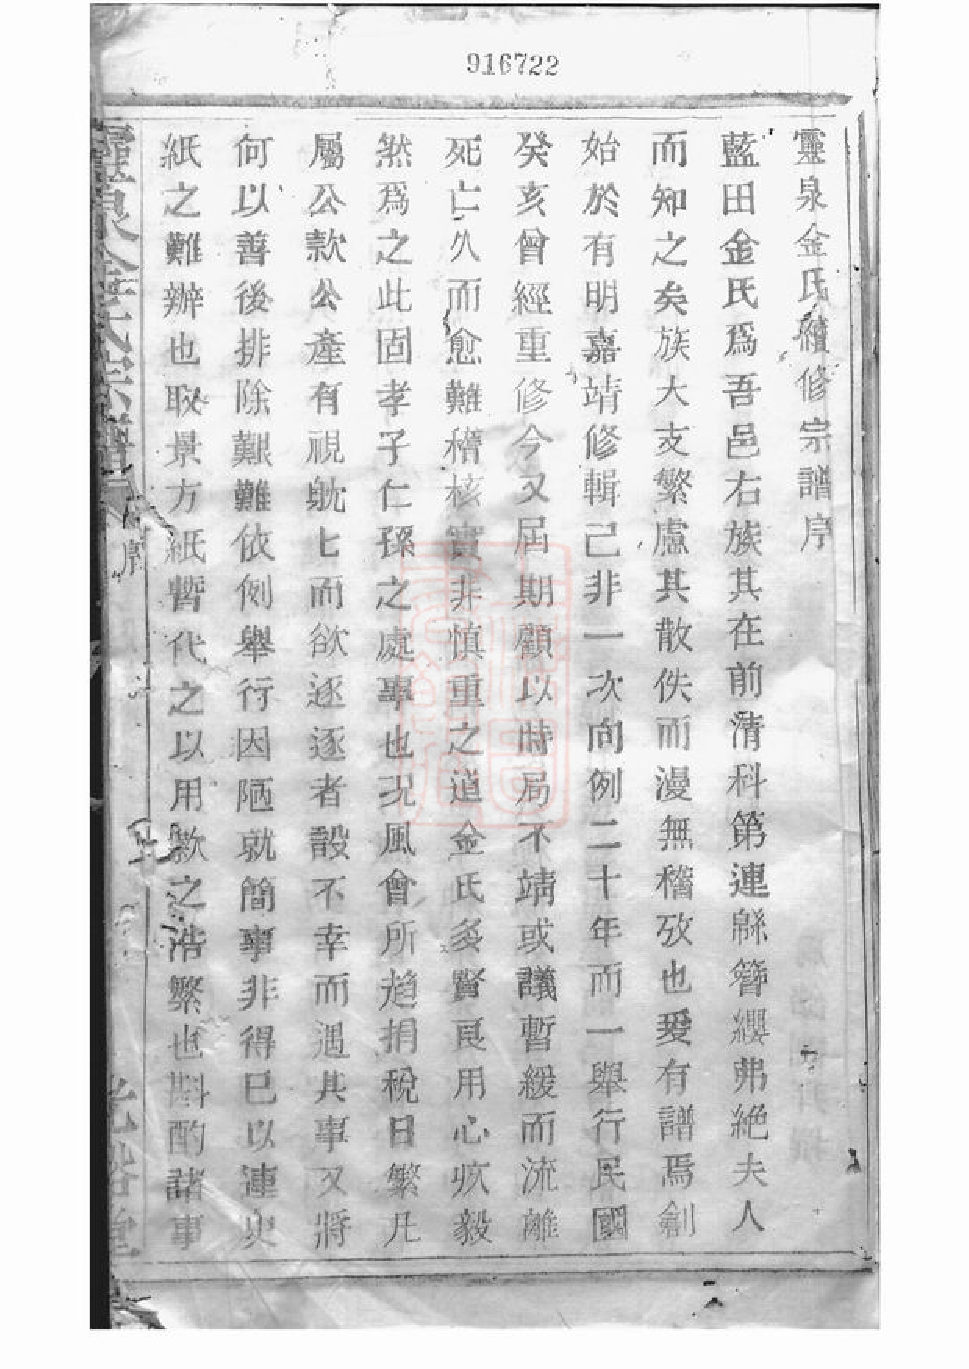 916722
靈泉金氏續修宗譜序
藍田金氏爲吾邑右族其在前清科第連緜簪纓弗絶夫人
而知之矣族大支繁慮其散佚而漫無稽攷也爰有譜焉創
始於有明嘉靖修輯己非一次向例二十年而一舉行民國
癸亥曾經重修今又屆期顧以時局不靖或議暫緩而流離
死亡久而愈難稽核實非慎重之道金氏多賢良用心疚毅
然爲之此固孝子仁孫之處事也况風會所趋捐稅日繁凡
屬公款公產有視眈匕而欲逐逐者設不幸而遇其事又將
何以善後排除艱難依例舉行因陋就簡事非得已以連史
紙之難辦也取景方紙暫代之以用款之浩繁也斟酌諸事
靈泉金氏宗譜 序